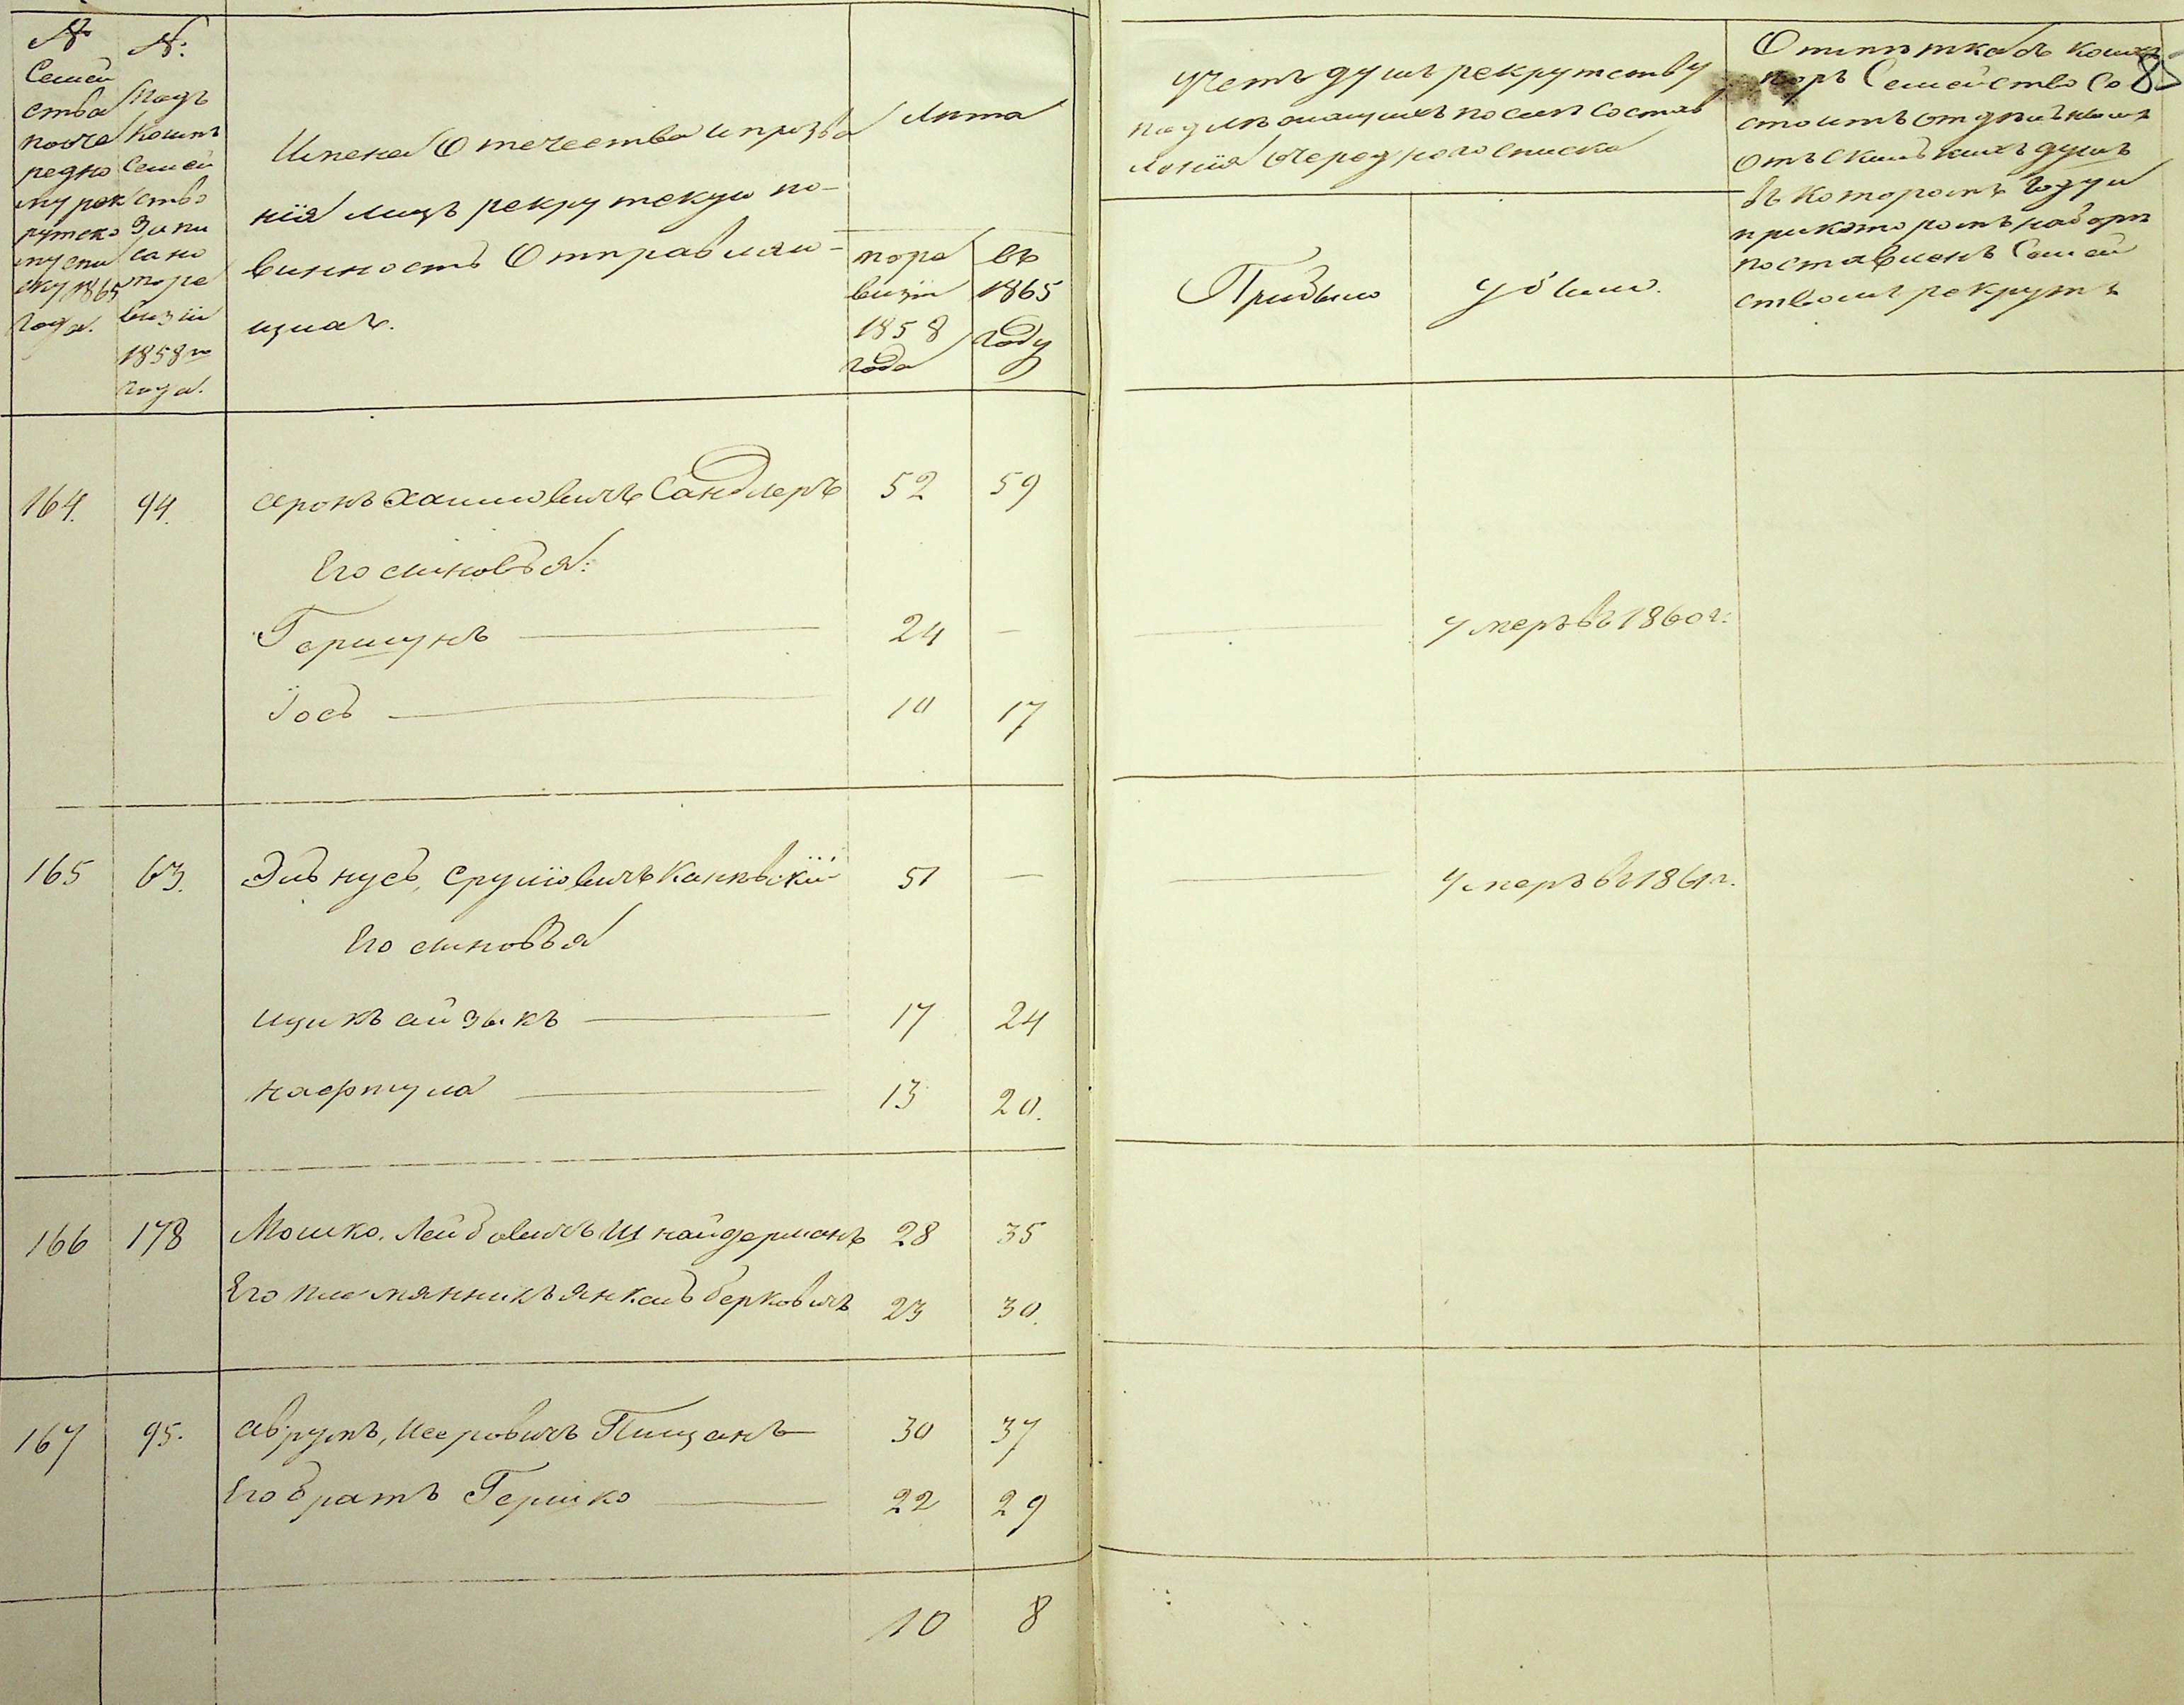 № Семейства поочередному рекрутскому списку 1865 года.
№: Подъ коимъ Семейство Записано поревизіи 1858го года.
Имена Отечества и прозва
нія лицъ рекрутскую по-
винность Отправляю-
щихъ.
Лѣта
поре
визіи
1858
года
въ
1865
году
Учетъ душъ рекрутству
подлѣжащихъ посемъ состав
ленія очереднаго списка
Прибыло
убыли.
85
Отмѣтка
Семейство Со
стоитъ
отъ сколькихъ душъ
въ которомъ году и
при которомъ наборѣ
поставленъ Семей
ствомъ рекрутъ
164. 94. Аронъ Хаимовичъ Сандлеръ 52 59
Его сыновья:
Гершунъ — 24 — — Умеръ въ 1860 г:
Іось — 10 17
165 63. Эльнусь, Сруліовичъ Каневскій 51 — — Умеръ въ 1861 г.
Его сыновья
Ицикъ айзыкъ — 17 24
Нафтула — 13 20.
166 178 Мошко, Лейбовичъ Шнайдерманъ 28 35
Его племянникъ Янкель Берковичъ 23 30.
167 95. Аврумъ, Исеровичъ Пищанъ 30 37
Его братъ Гершко — 22 29
10 8